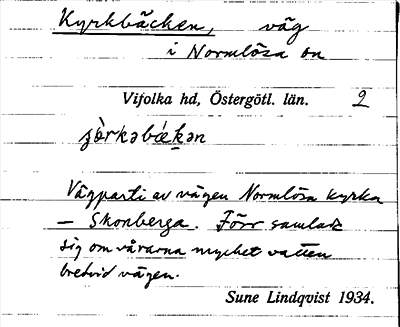 Kyrkbäcken, väg
i Normlösa sn
Vifolka hd, Östergötl. län. 2
Vägparti av vägen Normlösa kyrka
– Skonberga. Förr samlade
sig om vårarna mycket vatten
bredvid vägen.
Sune Lindqvist 1934.